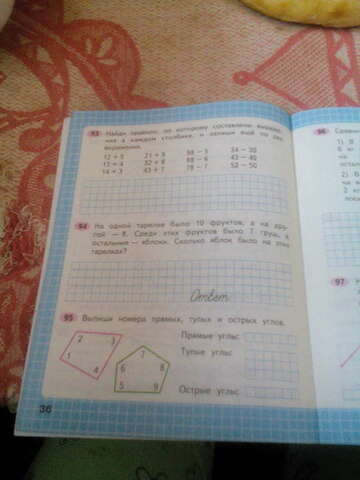 93 Найди правило, по которому составлены выраже-
ния в каждом столбике, и запиши ещё по два
выражения.
12 + 5 21 + 9 98 − 5 34 − 30
13 + 4 32 + 8 88 − 6 43 − 40
14 + 3 43 + 7 78 − 7 52 − 50
94 На одной тарелке было 10 фруктов, а на дру-
гой — 8. Среди этих фруктов было 7 груш, а
остальные — яблоки. Сколько яблок было на этих
тарелках?
Ответ
95 Выпиши номера прямых, тупых и острых углов.
Прямые углы:
Тупые углы:
Острые углы:
1 2 3 4
5 6 7 8 9
36
96
1) В
6 кг
на
2) В
на
97